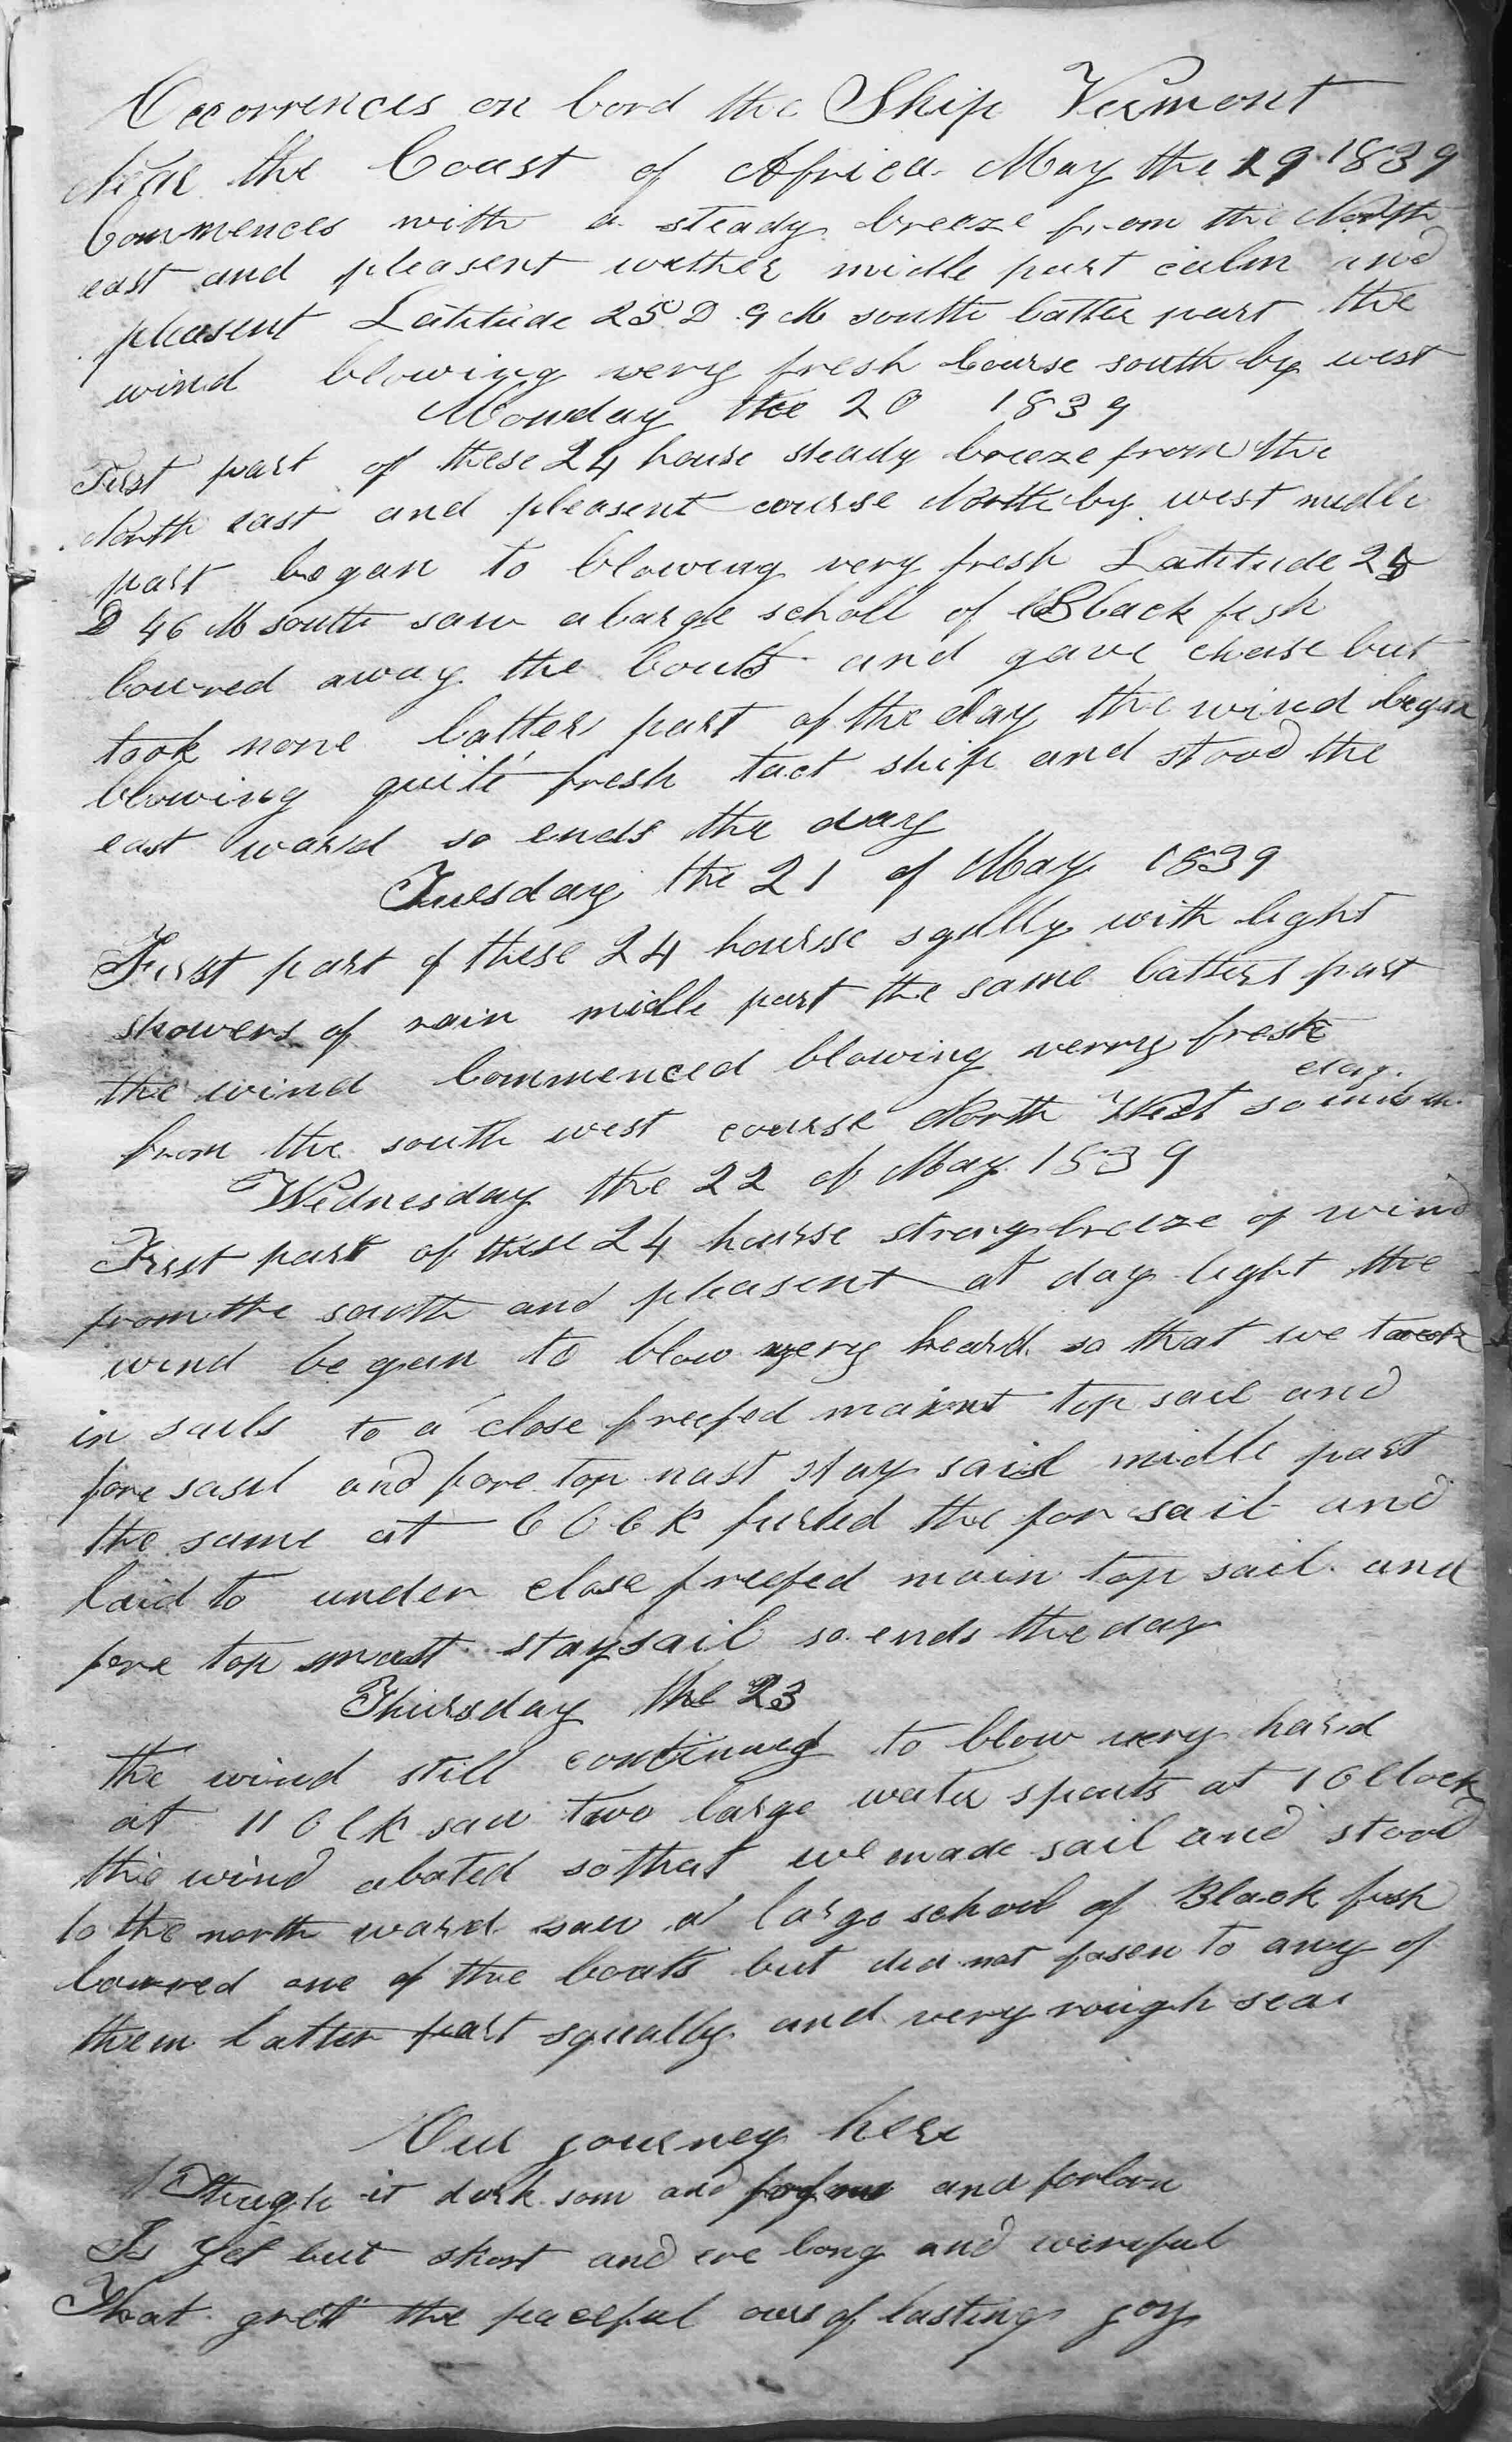 Occorrences on bord the Ship Vermont
Near the Coast of Africa May the 19 1839
Commences with a steady breeze from the North
east and pleasent wether midle part calm and
pleasent Latitude 25 D 9 M south latter part the
wind blowing very fresh Course south by west
Monday the 20 1839
First part of these 24 hourse steady breeze from the
North east and pleasent course North by west midle
part began to blowing very fresh Latitude 25
D 46 M south saw a large scholl of Black fish
lowred away the bouts and gave chase but
took none latter part of the day the wind began
blowing quite fresh tact ship and stood the
east ward so ends the day
Tuesday the 21 of May 1839
First part of these 24 hourse sqully with light
showers of rain midle part the same latters part
the wind Commenced blowing verry fresh
from the south west course North West so ends the
day.
Wednesday the 22 of May 1839
First part of these 24 hourse strong breeze of wind
from the south and pleasent at day light the
wind began to blow very heard so that we took
in sails to a close freefed main top sail and
fore sail and fore top mast stay sail midle part
the same at 6 O C K furled the for sail and
laid to under close freefed main top sail and
fore top mast staysail so ends the day
Thursday the 23
the wind still continued to blow very hard
at 11 O C K saw two large water spouts at 1 O Clock
the wind abated so that we made sail and stood
to the north ward saw a large school of Black fish
lowred one of the boats but did not fasen to any of
them latter part squally and very rough sea
Our journey here
Though it dark som and and forlorn
Is yet but short and ere long
That grett the peaceful ours of lasting joy